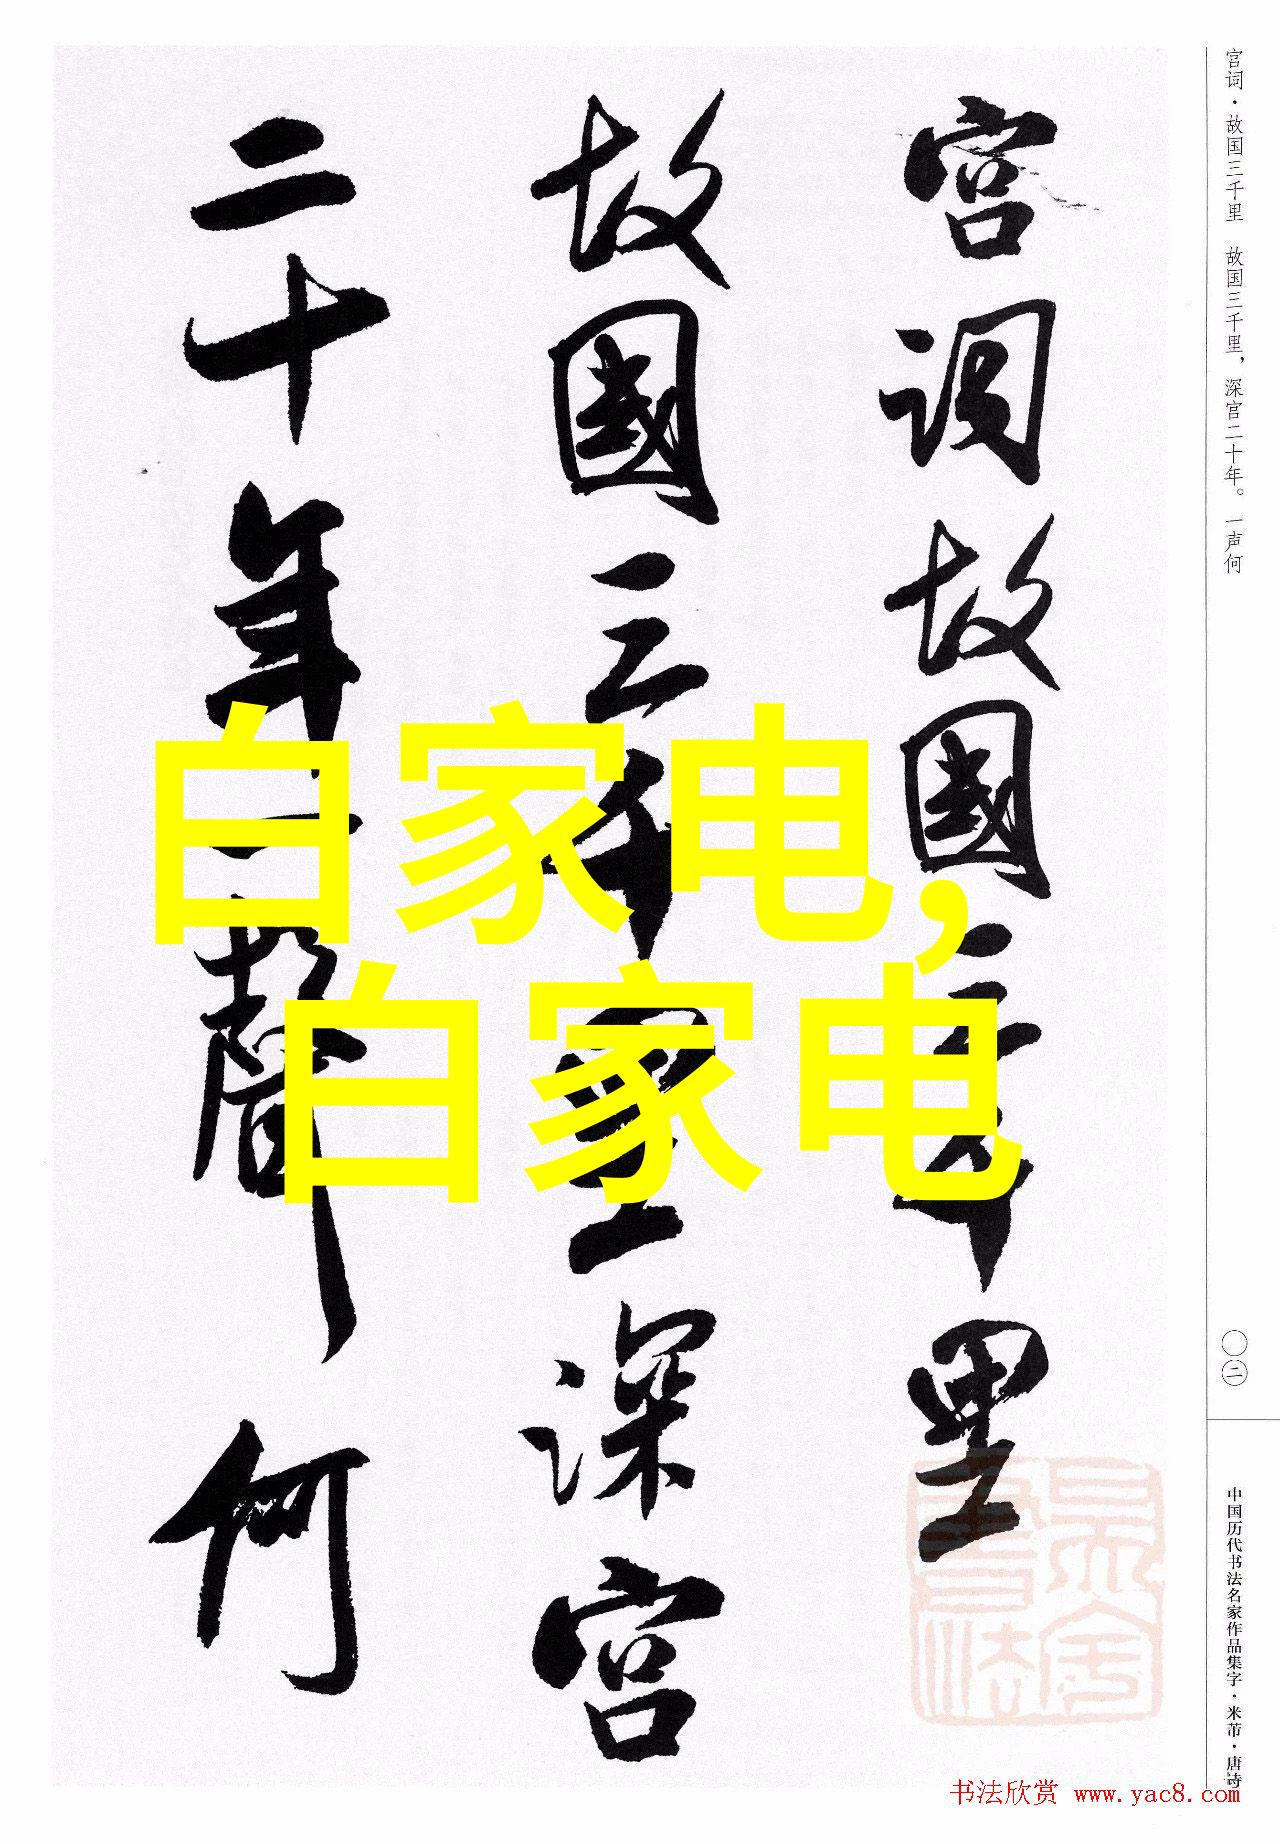 宫词故國三千里
故國三千里深宫
二十年一聲何
白家电，
白家电
宫词·故国三千里 故国三千里，深宫二十年。一声何
〇二
中国历代书法名家作品集字·米芾·唐诗
书法欣赏 www.yac8.com